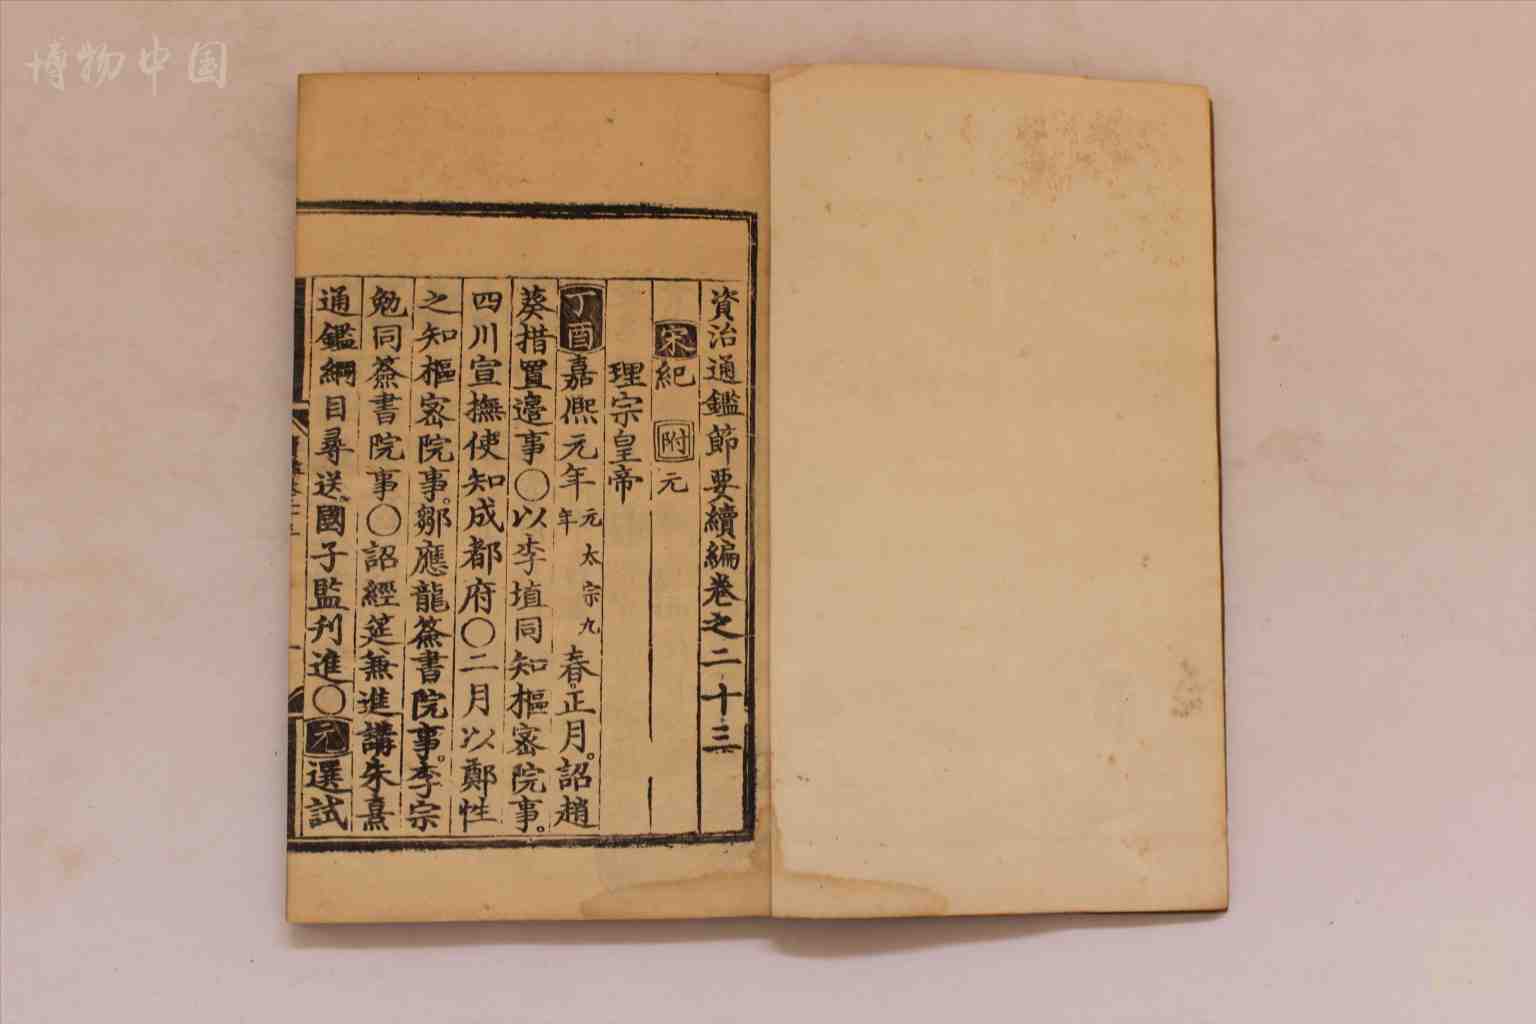 博物中国
資治通鑑節要續編卷之二十三
宋紀 附元
理宗皇帝
丁酉嘉熙元年 元太宗九年 春正月。詔趙
葵措置邊事〇以李埴同知樞密院事。
四川宣撫使知成都府〇二月以鄭性
之知樞密院事。鄒應龍簽書院事。李宗
勉同簽書院事〇詔經筵兼進講朱熹
通鑑綱目尋送國子監刊進〇元選試